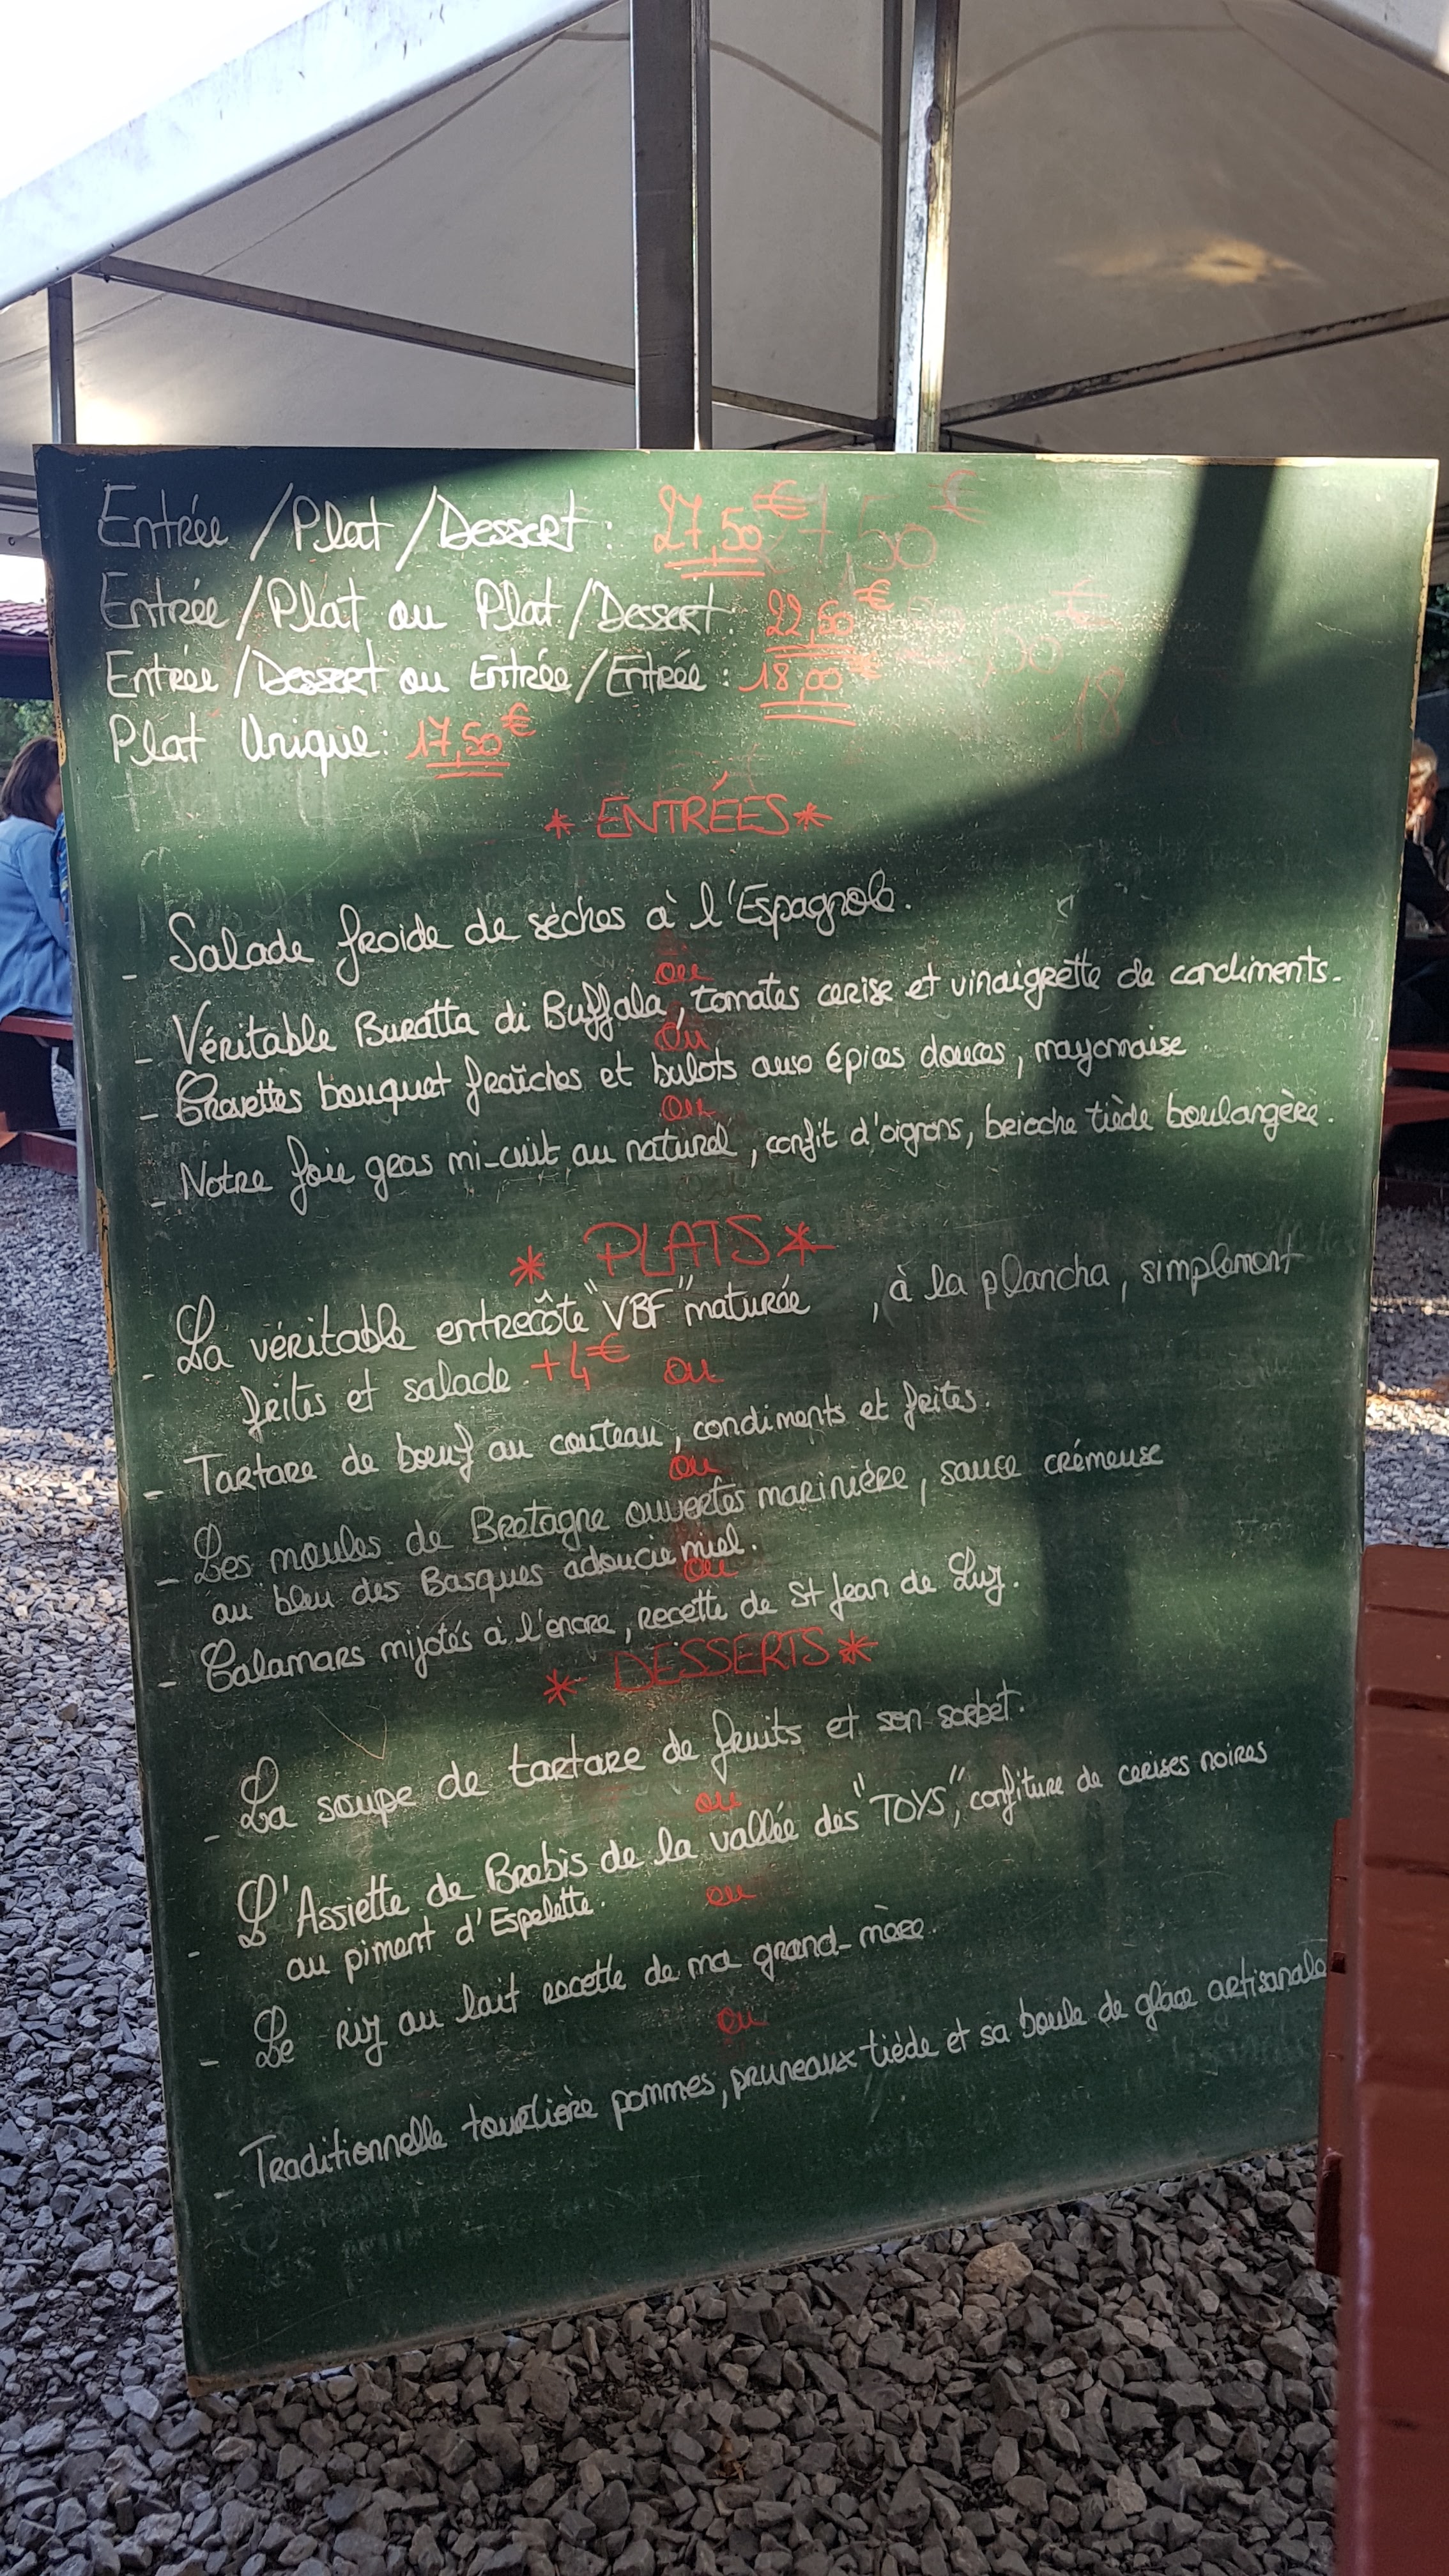 Entrée/Plat/Dessert: 27,50€
Entrée/Plat ou Plat/Dessert: 22,50€
Entrée/Dessert ou Entrée/Entrée: 18,00€
Plat Unique: 17,50€
* ENTRÉES *
- Salade froide de sèches à l'Espagnole.
ou
- Véritable Buratta di Buffala, tomates cerise et vinaigrette de condiments.
ou
- Crevettes bouquet fraîches et bulots aux épices douces, mayonnaise
ou
- Notre foie gras mi-cuit au naturel, confit d'oignons, brioche tiède boulangère.
* PLATS *
- La véritable entrecôte "VBF" maturée , à la plancha, simplement
frites et salade. +4€ ou
- Tartare de boeuf au couteau, condiments et frites.
ou
- Les moules de Bretagne ouvertes marinière, sauce crémeuse
au bleu des Basques adoucie miel.
ou
- Calamars mijotés à l'encre, recette de St Jean de Luz.
* DESSERTS *
- La soupe de tartare de fruits et son sorbet.
ou
- L'Assiette de Brebis de la vallée des "TOYS", confiture de cerises noires
au piment d'Espelette.
ou
- Le riz au lait recette de ma grand-mère.
ou
- Traditionnelle tourtière pommes, pruneaux tiède et sa boule de glace artisanale